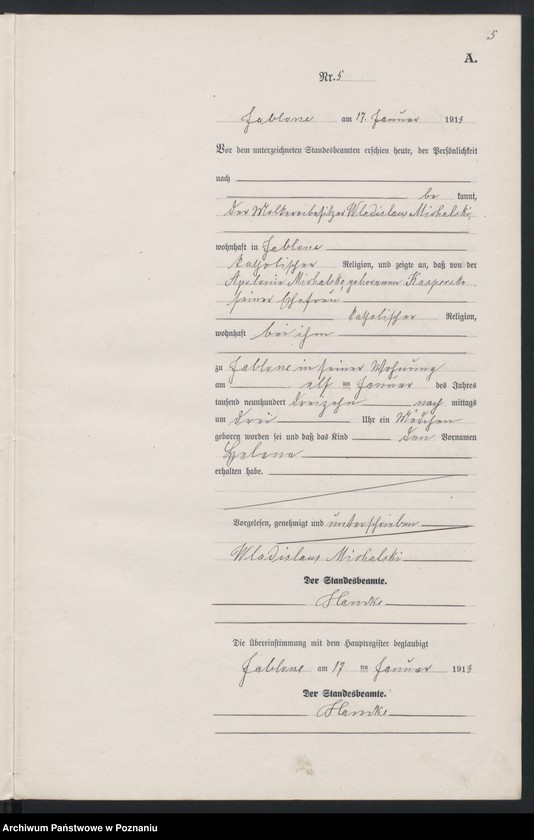 5
A.
Nr. 5
Jablone am 17. Januar 1913
Vor dem unterzeichneten Standesbeamten erschien heute, der Persönlichkeit
nach
be kannt,
der Molkereibesitzer Wladislaus Michalski,
wohnhaft in Jablone
katholischer Religion, und zeigte an, daß von der
Apolonie Michalska geborenen Kasperska
seiner Ehefrau
katholischer Religion,
wohnhaft bei ihm
zu Jablone in seiner Wohnung
am elf ten Januar des Jahres
tausend neunhundert dreizehn nach mittags
um drei Uhr ein Mädchen
geboren worden sei und daß das Kind den Vornamen
Helene
erhalten habe.
Vorgelesen, genehmigt und unterschrieben
Wladislaus Michalski
Der Standesbeamte.
Die Übereinstimmung mit dem Hauptregister beglaubigt
Jablone am 17 ten Januar 1913
Der Standesbeamte.
Archiwum Państwowe w Poznaniu